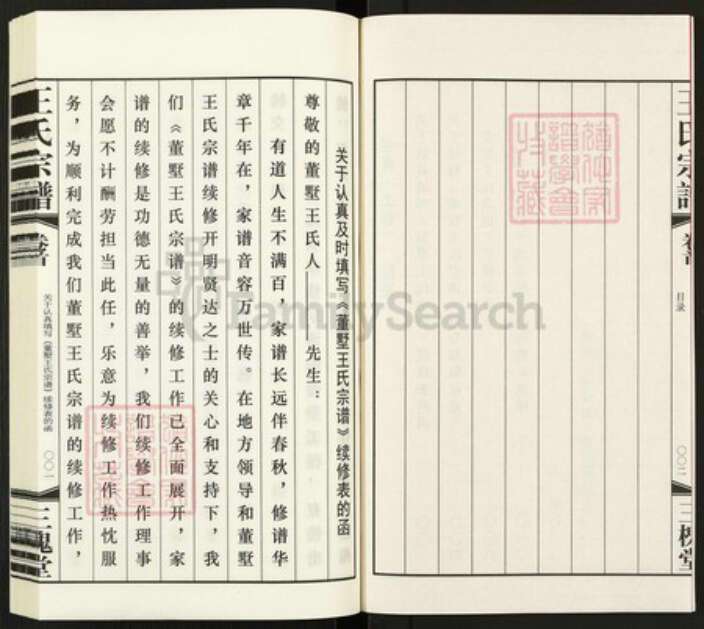 王氏宗谱
卷首
目录
〇〇二
三槐堂
关于认真及时填写《董墅王氏宗谱》续修表的函
尊敬的董墅王氏人——先生：
有道人生不满百，家谱长远伴春秋，修谱华
章千年在，家谱音容万世传。在地方领导和董墅
王氏宗谱续修开明贤达之士的关心和支持下，我
们《董墅王氏宗谱》的续修工作已全面展开，家
谱的续修是功德无量的善举，我们续修工作理事
会愿不计酬劳担当此任，乐意为续修工作热忱服
务，为顺利完成我们董墅王氏宗谱的续修工作，
王氏宗谱
卷首
关于认真填写《董墅王氏宗谱》续修表的函
〇〇一
三槐堂
FamilySearch